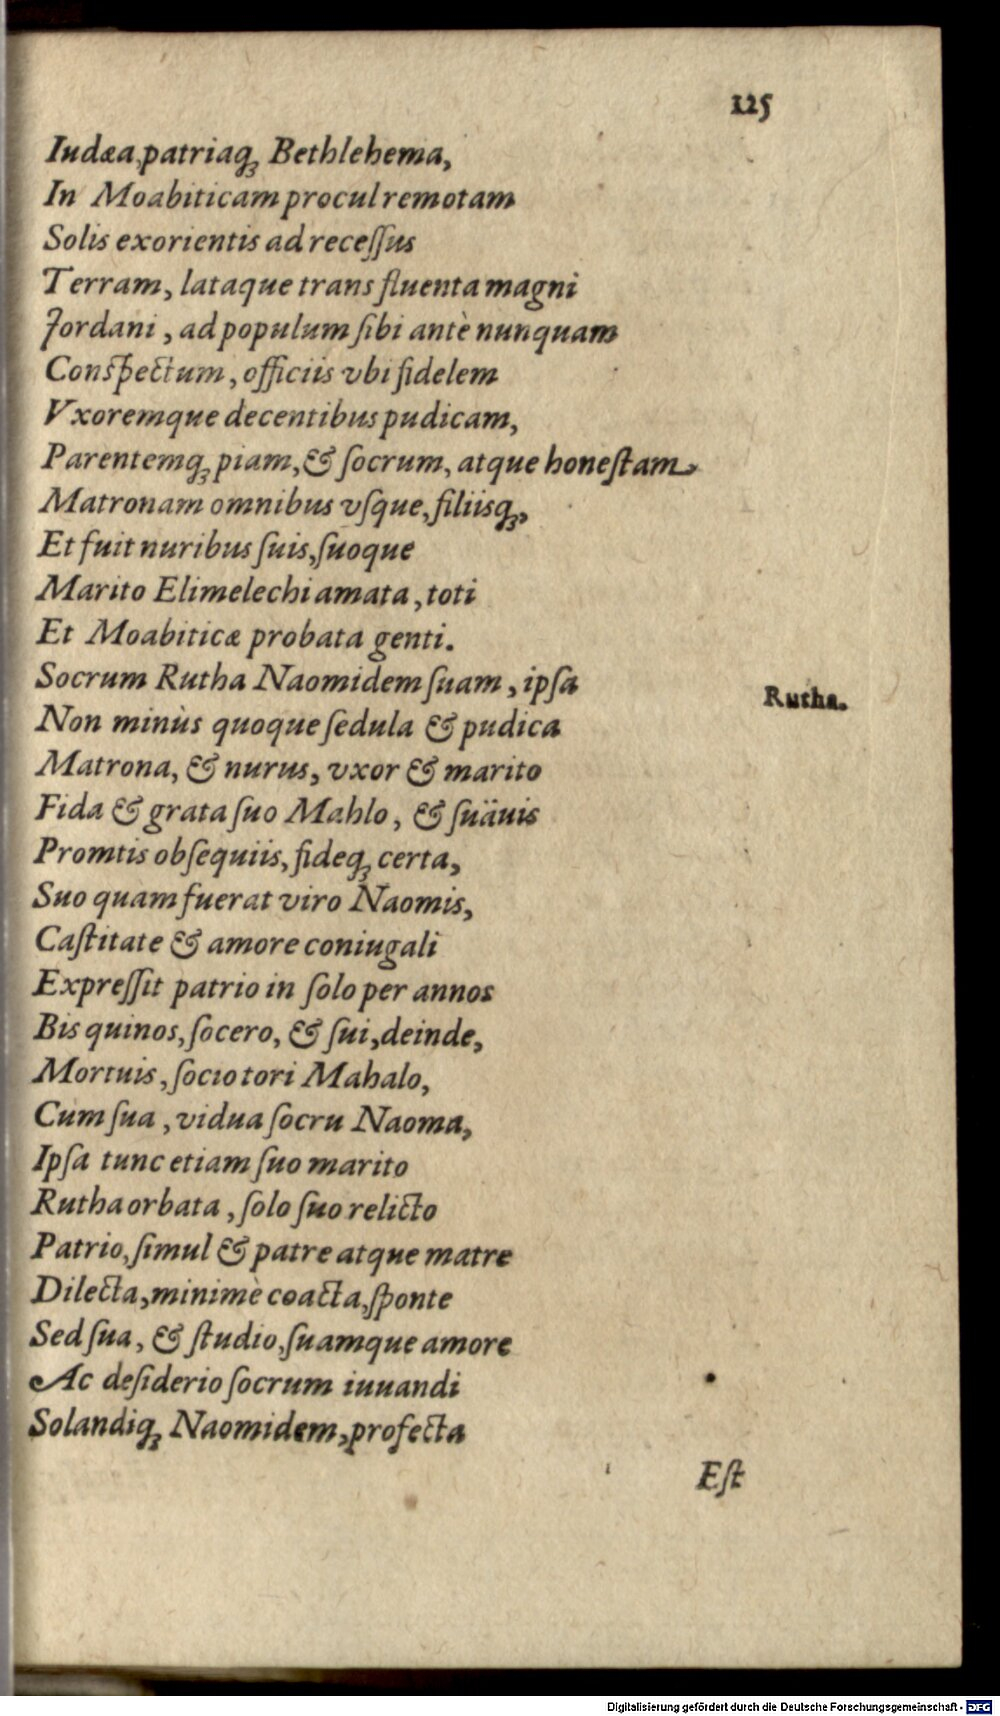 125
Iudæa, patriaq́ꝫ Bethlehema,
In Moabiticam procul remotam
Solis exorientis ad receſſus
Terram, lataque trans fluenta magni
Jordani, ad populum ſibi antè nunquam
Conſpectum, officiis vbi fidelem
Vxoremque decentibus pudicam,
Parentemqꝫ piam, & ſocrum, atque honeſtam
Matronam omnibus vſque, filiisqꝫ,
Et fuit nuribus ſuis, ſuoque
Marito Elimelechi amata, toti
Et Moabiticæ probata genti.
Socrum Rutha Naomidem ſuam, ipſa
Rutha.
Non minùs quoque ſedula & pudica
Matrona, & nurus, vxor & marito
Fida & grata ſuo Mahlo, & ſuäuis
Promtis obſequiis, fideqꝫ certa,
Suo quam fuerat viro Naomis,
Caſtitate & amore coniugali
Expreſſit patrio in ſolo per annos
Bis quinos, ſocero, & ſui, deinde,
Mortuis, ſocio tori Mahalo,
Cum ſua, vidua ſocru Naoma,
Ipſa tunc etiam ſuo marito
Rutha orbata, ſolo ſuo relicto
Patrio, ſimul & patre atque matre
Dilecta, minimè coacta, ſponte
Sed ſua, & ſtudio, ſuamque amore
Ac deſiderio ſocrum iuuandi
Solandiqꝫ Naomidem, profecta
Eſt
Digitalisierung gefördert durch die Deutsche Forschungsgemeinschaft - DFG